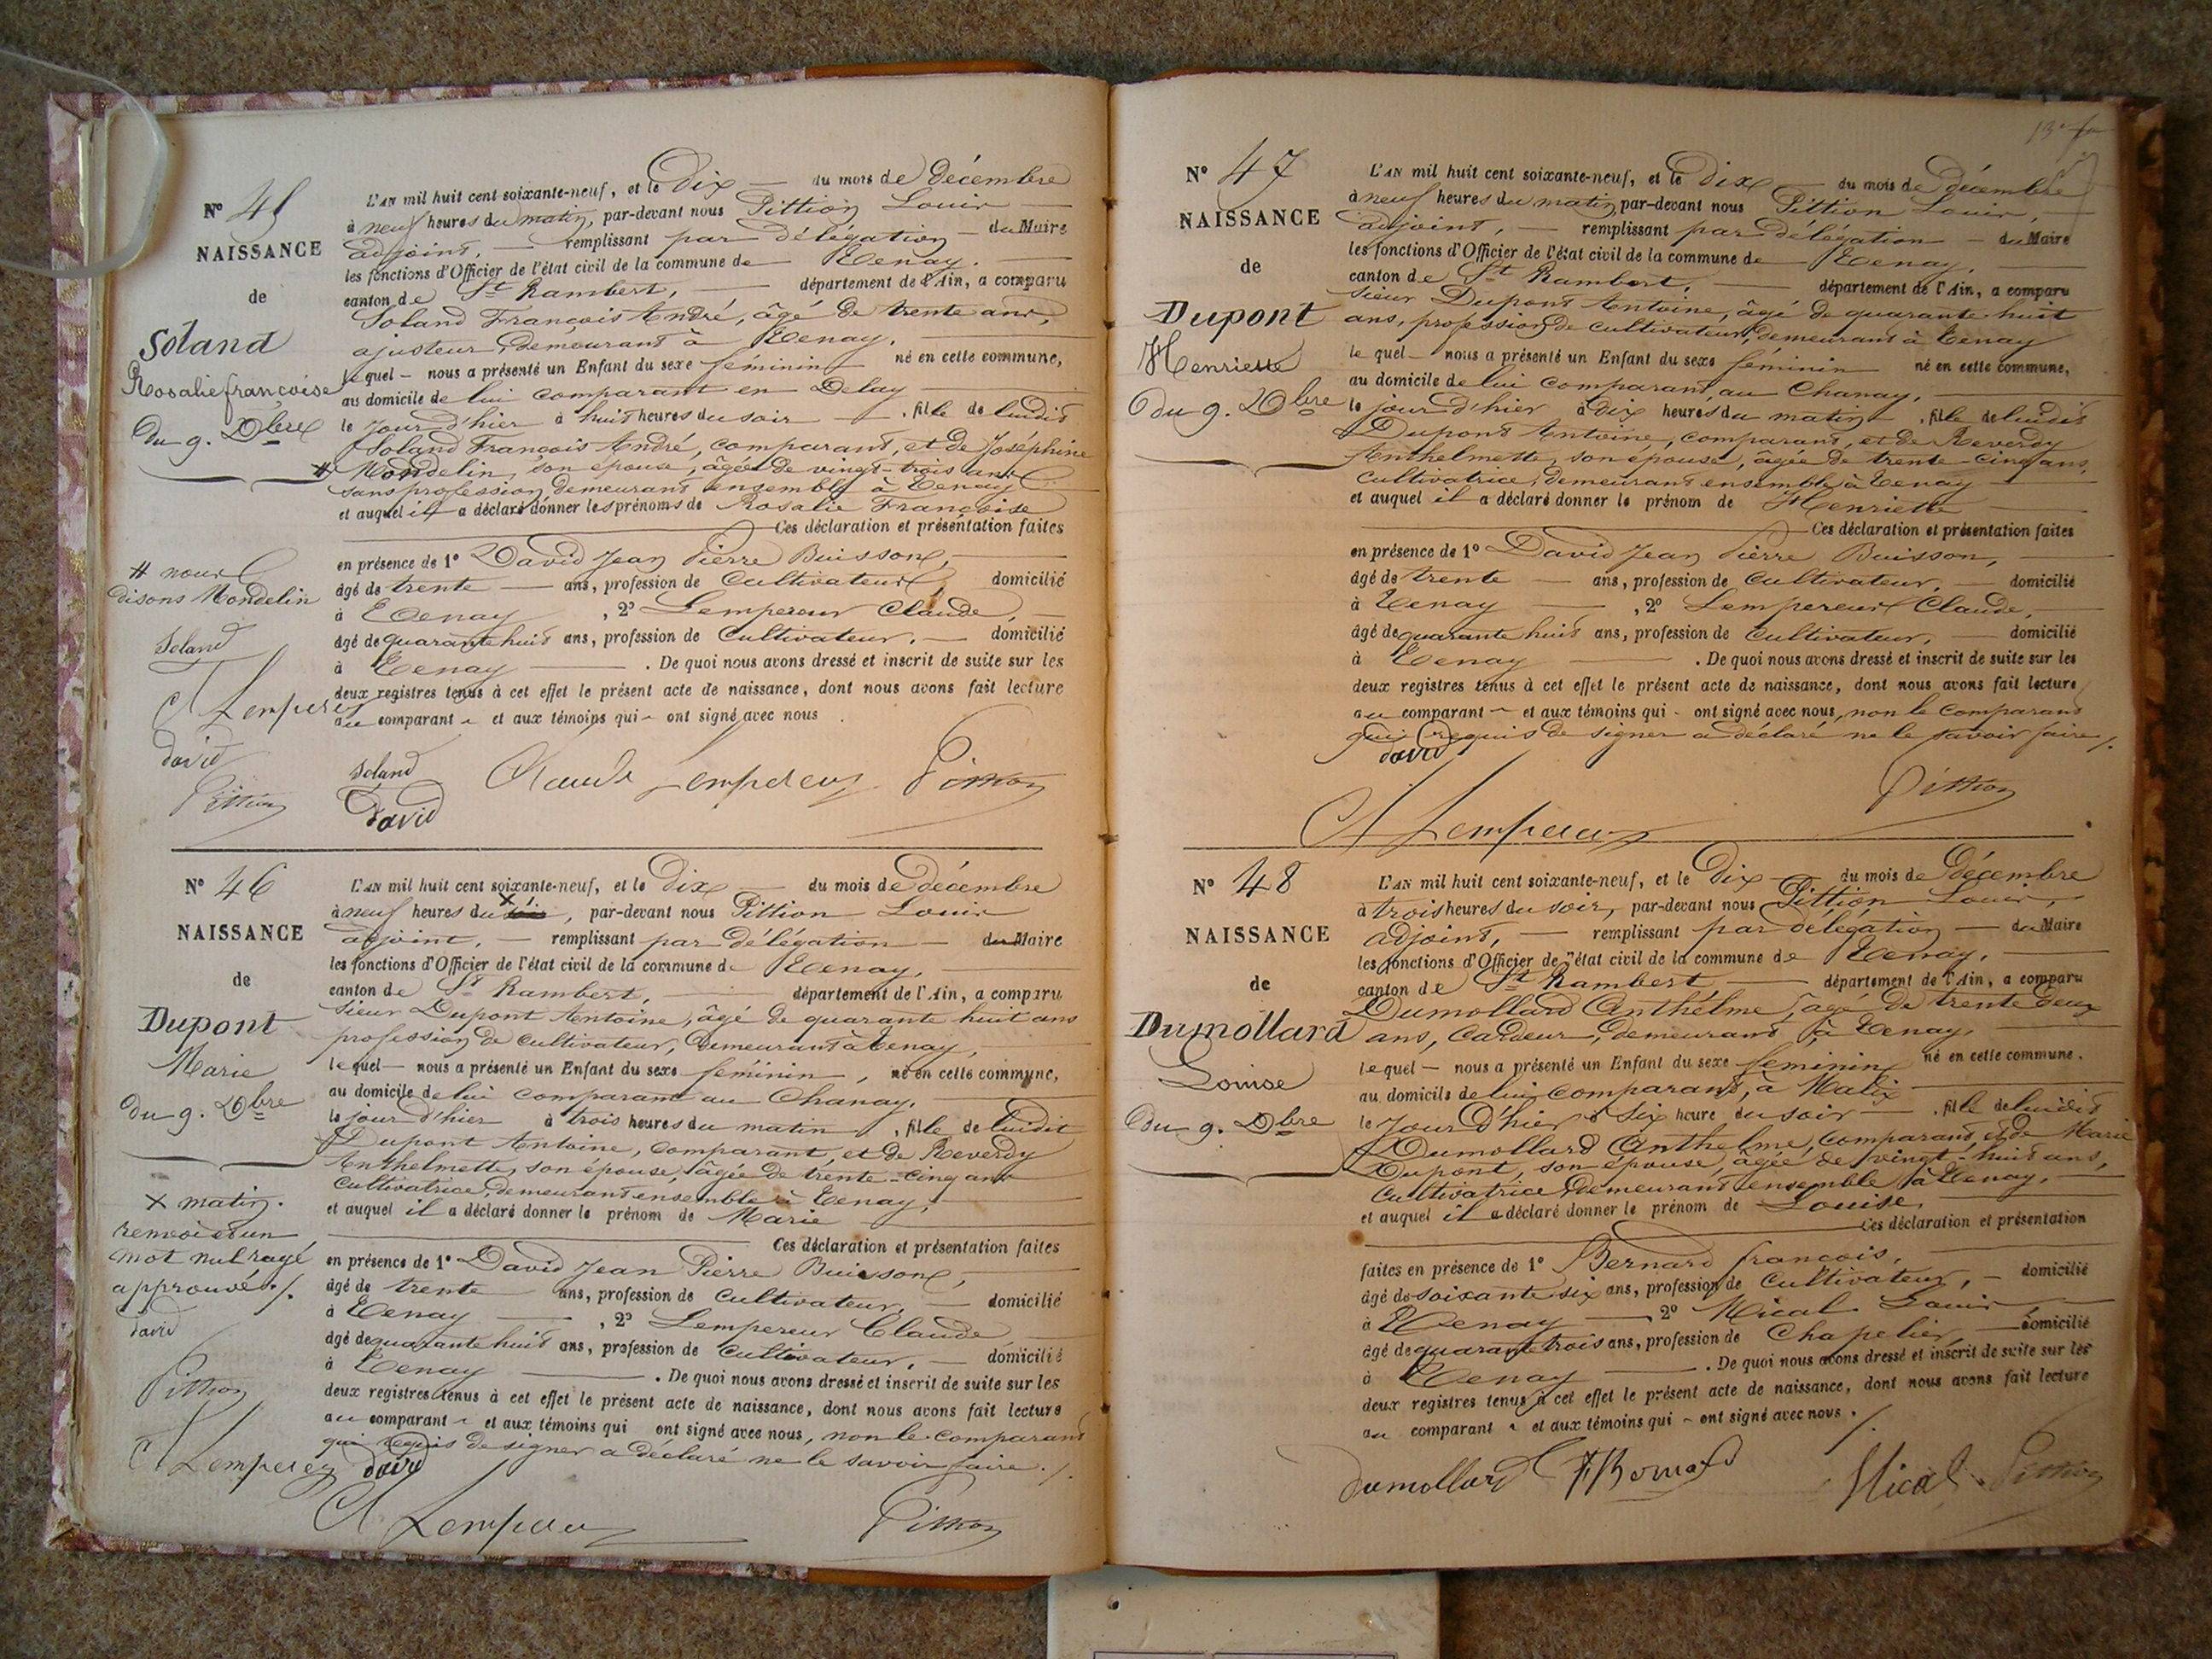 Nº 45
NAISSANCE
de
Soland
Rosalie françoise
du 9. Xbre
L'AN mil huit cent soixante-neuf, et le Dix — du mois de Décembre
à neuf heures du matin, par-devant nous Pittion Louis —
adjoint, — remplissant par délégation — du Maire
les fonctions d'Officier de l'état civil de la commune de Tenay.
canton de St Rambert, — département de l'Ain, a comparu
Soland François André, âgé de trente ans,
ajusteur, demeurant à Tenay.
lequel — nous a présenté un Enfant du sexe féminin né en cette commune,
au domicile de lui comparant en Delay
le jour d'hier à huit heures du soir — , fille de ludit
Soland François André, comparant, et de Joséphine
# Mondelin, son épouse, âgée de vingt-trois ans
sans profession, demeurant ensemble à Tenay
et auquel il a déclaré donner les prénoms de Rosalie Françoise
Ces déclaration et présentation faites
en présence de 1º David Jean Pierre Buisson,
âgé de trente — ans, profession de Cultivateur, domicilié
à Tenay , 2º Lempereur Claude, —
âgé de quarante huit ans, profession de Cultivateur, — domicilié
à Tenay — . De quoi nous avons dressé et inscrit de suite sur les
deux registres tenus à cet effet le présent acte de naissance, dont nous avons fait lecture
au comparant et aux témoins qui ont signé avec nous .
# nous
disons Mondelin
Soland
C Lemperey
david
Pittion
Soland Claude Lempereur Pittion
david
Nº 46
NAISSANCE
de
Dupont
Marie
du 9. Xbre
L'AN mil huit cent soixante-neuf, et le Dix — du mois de Décembre
à neuf heures du soir X, par-devant nous Pittion Louis
adjoint, — remplissant par délégation — du Maire
les fonctions d'Officier de l'état civil de la commune de Tenay,
canton de St Rambert, — département de l'Ain, a comparu
sieur Dupont Antoine, âgé de quarante huit ans
profession de cultivateur, demeurant à Tenay,
lequel — nous a présenté un Enfant du sexe féminin , né en cette commune,
au domicile de lui comparant au Chanay,
le jour d'hier à trois heures du matin , fille de ludit
Dupont Antoine, comparant, et de Reverdy
Anthelmette, son épouse, âgée de trente-cinq ans
Cultivatrice, demeurant ensemble à Tenay,
et auquel il a déclaré donner le prénom de Marie
Ces déclaration et présentation faites
en présence de 1º David Jean Pierre Buisson,
âgé de trente ans, profession de Cultivateur, — domicilié
à Tenay — , 2º Lempereur Claude
âgé de quarante huit ans, profession de Cultivateur, — domicilié
à Tenay — . De quoi nous avons dressé et inscrit de suite sur les
deux registres tenus à cet effet le présent acte de naissance, dont nous avons fait lecture
au comparant et aux témoins qui ont signé avec nous, non le comparant
qui requis de signer a déclaré ne le savoir faire ./.
X matin.
renvoi et un
mot nul rayé
approuvé ./.
david
Pittion
C Lemperey
david
C Lempereur Pittion
Nº 47
NAISSANCE
de
Dupont
Henriette
du 9. Xbre
L'AN mil huit cent soixante-neuf, et le Dix — du mois de Décembre
à neuf heures du matin, par-devant nous Pittion Louis,
adjoint, — remplissant par délégation — du Maire
les fonctions d'Officier de l'état civil de la commune de Tenay,
canton de St Rambert, — département de l'Ain, a comparu
sieur Dupont Antoine, âgé de quarante huit
ans, profession de cultivateur, demeurant à Tenay
lequel — nous a présenté un Enfant du sexe féminin né en cette commune,
au domicile de lui comparant, au Chanay,
le jour d'hier à dix heures du matin , fille de ludit
Dupont Antoine, comparant, et de Reverdy
Anthelmette, son épouse, âgée de trente-cinq ans,
Cultivatrice, demeurant ensemble à Tenay
et auquel il a déclaré donner le prénom de Henriette
Ces déclaration et présentation faites
en présence de 1º David Jean Pierre Buisson,
âgé de trente — ans, profession de Cultivateur, — domicilié
à Tenay — , 2º Lempereur Claude,
âgé de quarante huit ans, profession de Cultivateur, — domicilié
à Tenay — . De quoi nous avons dressé et inscrit de suite sur les
deux registres tenus à cet effet le présent acte de naissance, dont nous avons fait lecture
au comparant — et aux témoins qui ont signé avec nous, non le comparant
qui requis de signer a déclaré ne le savoir faire ./.
david
Pittion
C Lempereur
Nº 48
NAISSANCE
de
Dumollard
Louise
du 9. Xbre
L'AN mil huit cent soixante-neuf, et le Dix — du mois de Décembre
à trois heures du soir, par-devant nous Pittion Louis,
adjoint, — remplissant par délégation — du Maire
les fonctions d'Officier de l'état civil de la commune de Tenay,
canton de St Rambert, — département de l'Ain, a comparu
Dumollard Anthélme, âgé de trente deux
ans, Cardeur, demeurant à Tenay,
lequel — nous a présenté un Enfant du sexe féminin né en cette commune.
au domicile de lui comparant, à Malix
le jour d'hier à six heure du soir — , fille de ludit
Dumollard Anthelme, comparant, et de Marie
Dupont, son épouse, âgée de vingt-huit ans,
Cultivatrice, demeurant ensemble à Tenay,
et auquel il a déclaré donner le prénom de Louise,
Ces déclaration et présentation
faites en présence de 1º Bernard françois,
âgé de soixante six ans, profession de Cultivateur, — domicilié
à Tenay — 2º Mical Louis
âgé de quarante trois ans, profession de Chapelier, — domicilié
à Tenay — . De quoi nous avons dressé et inscrit de suite sur les
deux registres tenus à cet effet le présent acte de naissance, dont nous avons fait lecture
au comparant et aux témoins qui ont signé avec nous ./.
dumollard F Bernard Mical Pittion